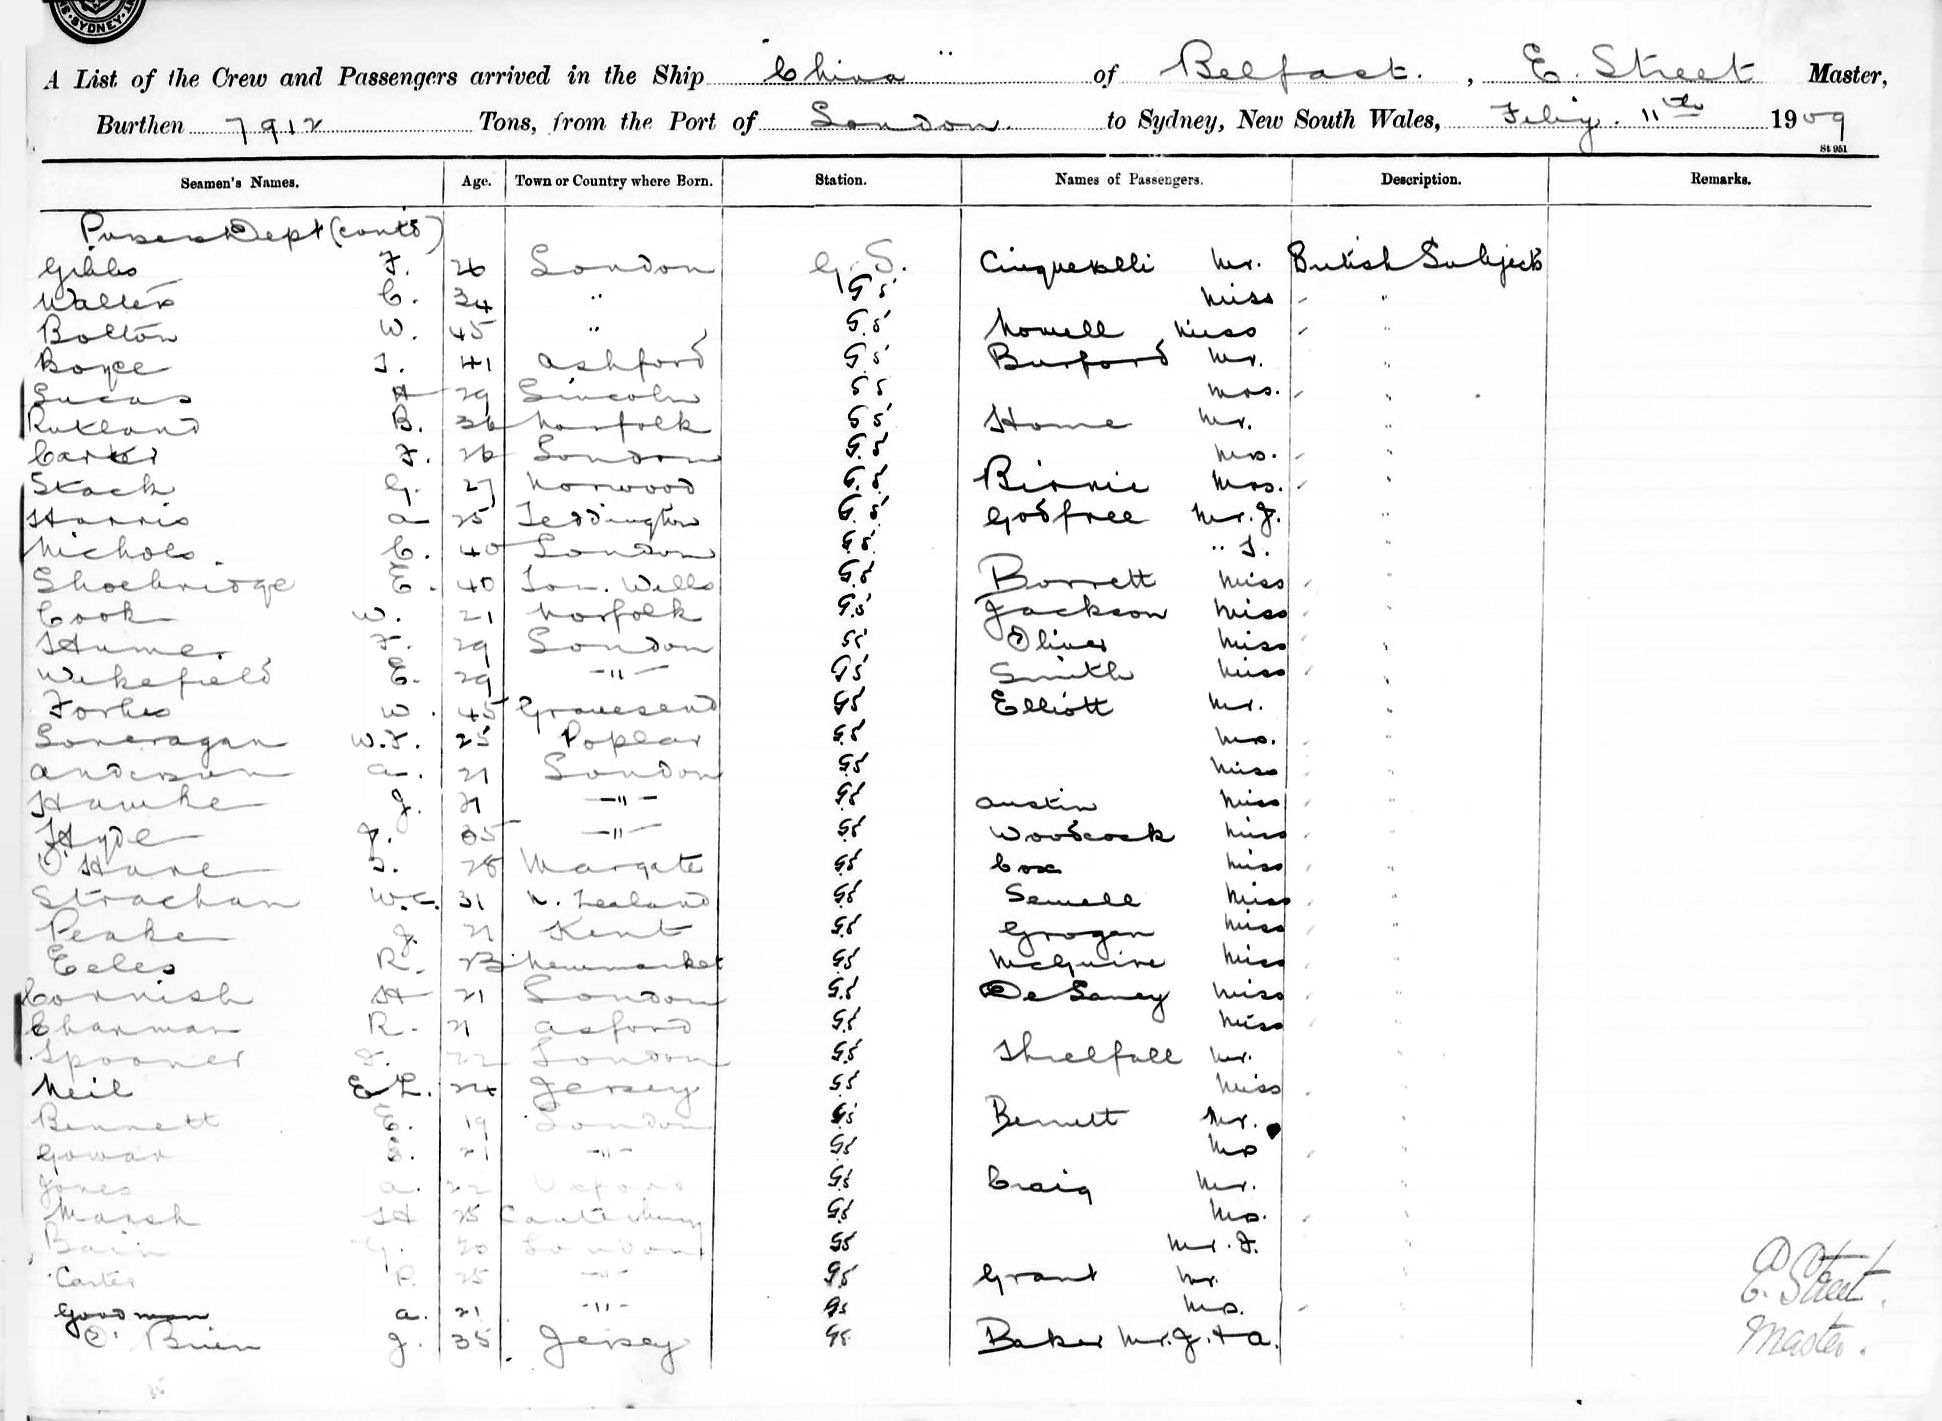 SYDNEY
A List of the Crew and Passengers arrived in the Ship "China" of Belfast. , E. Street Master,
Burthen 7912 Tons, from the Port of London. to Sydney, New South Wales, Feby. 11th 1909
St 951
Seamen's Names. Age. Town or Country where Born. Station. Names of Passengers. Description. Remarks.
Pursers Dept (contd)
Gibbs F. 26 London G.S. Cinquevalli Mr. British Subjects
Walters C. 34 " G.S. Miss " "
Bolton W. 45 " G.S. Nowell Miss " "
Boyce J. 41 Ashford G.S. Burford Mr. "
Lucas H 29 Lincoln G.S. Mrs. " "
Rutland B. 36 Norfolk G.S. Home Mr. "
Carter F. 26 London G.S. Mrs. " "
Stack G. 27 Norwood G.S. Birnie Mrs. " "
Harris A 25 Teddington G.S. Godfree Mr. J. "
Nichols. C. 40 London G.S. " T. "
Shoebridge E. 40 Tun. Wells G.S. Borrett Miss " "
Cook W. 21 Norfolk G.S. Jackson Miss " "
Humes F. 29 London G.S. Oliver Miss " "
Wakefield E. 29 -"- G.S. Smith Miss " "
Forbes W. 45 Gravesend G.S. Elliott Mr. "
Loneragan W.F. 25 Poplar G.S. Mrs. " "
Anderson A. 21 London G.S. Miss " "
Hawke J. 21 -"- G.S. Austin Miss " "
Hyde J. 35 -"- G.S. Woodcock Miss " "
O'Hare J. 28 Margate G.S. Cox Miss " "
Strachan W.C. 31 N. Zealand G.S. Sewell Miss " "
Peake J. 21 Kent G.S. Grogan Miss " "
Eeles R. 23 Newmarket G.S. McGuire Miss " "
Cornish H 21 London G.S. De Laney Miss " "
Charman R. 21 Asford G.S. Miss " "
Spooner F. 22 London G.S. Threlfall Mr. "
Neil E L. 24 Jersey G.S. Miss " "
Bennett E. 19 London G.S. Bennett Mr. "
Gowar S. 21 -"- G.S. Mrs " "
Jones A. 22 Oxford G.S. Craig Mr. "
Marsh H 25 Canterbury G.S. Mrs. " "
Bain G. 20 London G.S. Mr. F. "
Carter P. 25 -"- G.S. Grant Mr.
Goodman A. 21 -"- G.S. Mrs. "
O'Brien J. 35 Jersey G.S. Baker Mr. J. + A.
E. Street.
Master.